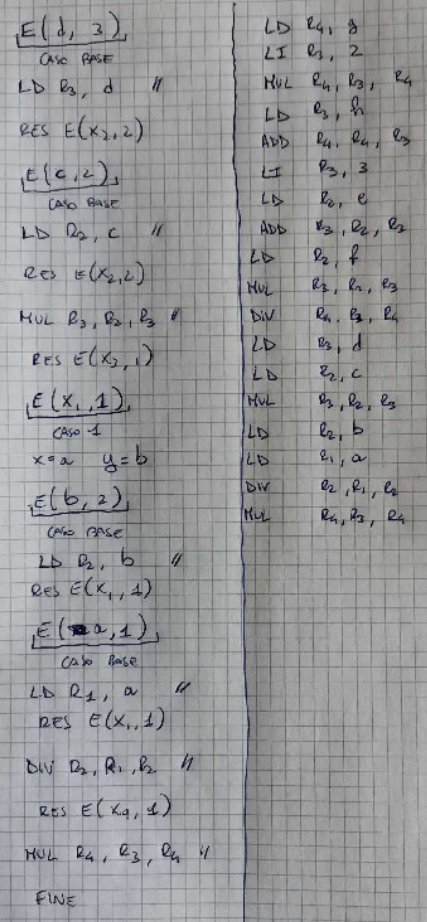 E(d, 3)
CASO BASE
LD R3, d //
RES E(x2, 2)
E(c, 2)
CASO BASE
LD R2, c //
RES E(x2, 2)
MUL R3, R2, R3 //
RES E(x2, 1)
E(x1, 1)
CASO 1
x=a y=b
E(b, 2)
CASO BASE
LD R2, b //
RES E(x1, 1)
E(a, 1)
CASO BASE
LD R1, a //
RES E(x1, 1)
DIV R2, R1, R2 //
RES E(x9, 1)
MUL R4, R3, R4 //
FINE
LD R4, g
LI R3, 2
MUL R4, R3, R4
LD R3, h
ADD R4, R4, R3
LI R3, 3
LD R2, e
ADD R3, R2, R3
LD R2, f
MUL R3, R2, R3
DIV R4, R3, R4
LD R3, d
LD R2, c
MUL R3, R2, R3
LD R2, b
LD R1, a
DIV R2, R1, R2
MUL R4, R3, R4